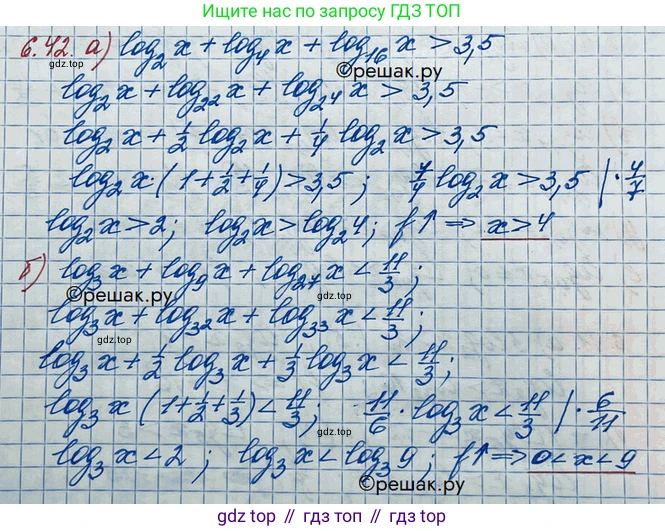 Ищите нас по запросу ГДЗ ТОП
6.42. а) log₂ x + log₄ x + log₁₆ x > 3,5
gdz.top
©решак.ру
log₂ x + log₂² x + log₂⁴ x > 3,5
log₂ x + 1/2 log₂ x + 1/4 log₂ x > 3,5
log₂ x · (1 + 1/2 + 1/4) > 3,5 ; 7/4 log₂ x > 3,5 | · 4/7
gdz.top
log₂ x > 2 ; log₂ x > log₂ 4 ; f↑ ⇒ x > 4
б) log₃ x + log₉ x + log₂₇ x < 11/3 ;
©решак.ру
gdz.top
©решак.ру
log₃ x + log₃² x + log₃³ x < 11/3 ;
log₃ x + 1/2 log₃ x + 1/3 log₃ x < 11/3 ;
log₃ x (1 + 1/2 + 1/3) < 11/3 ; 11/6 · log₃ x < 11/3 | · 6/11
gdz.top
gdz.top
log₃ x < 2 ; log₃ x < log₃ 9 ; f↑ ⇒ 0 < x < 9
©решак.ру
gdz.top // гдз.топ // gdz.top // гдз.топ